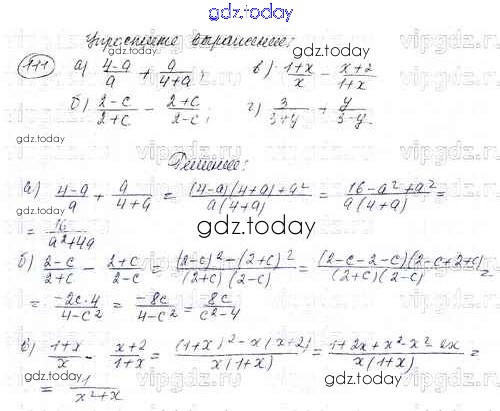 gdz.today
Упростите выражение:
gdz.today
111 а) (4-a)/a + a/(4+a); в) (1+x)/x - (x+2)/(1+x)
б) (2-c)/(2+c) - (2+c)/(2-c); г) 3/(3+y) + y/(3-y)
gdz.today
Решение:
а) (4-a)/a + a/(4+a) = ((4-a)(4+a)+a²)/(a(4+a)) = (16-a²+a²)/(a(4+a)) =
= 16/(a²+4a)
gdz.today
б) (2-c)/(2+c) - (2+c)/(2-c) = ((2-c)²-(2+c)²)/((2+c)(2-c)) = ((2-c-2-c)(2-c+2+c))/((2+c)(2-c)) =
= (-2c·4)/(4-c²) = (-8c)/(4-c²) = 8c/(c²-4)
в) (1+x)/x - (x+2)/(1+x) = ((1+x)²-x(x+2))/(x(1+x)) = (1+2x+x²-x²-2x)/(x(1+x)) =
= 1/(x²+x)
gdz.today